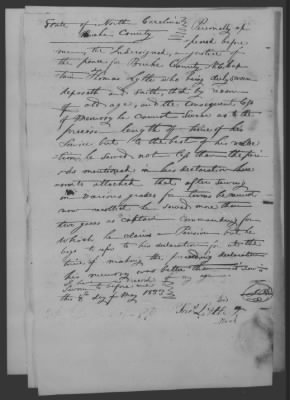 State of North Carolina
Burke County
Personally ap
peared before
me the Subscribed, a justice of
the peace for Burke County
Thomas Lytle who being duly sworn
deposeth and saith, that by reason
of old age, and the consequent loss
of memory he cannot swear as to the
precise length of time of his
service but to the best of his recollec
tion he served not less than the peri
ods mentioned in his declaration here
unto attached that after serving
in various grades for terms he cannot
now recollect he served more than
two years as captain Commanding for
which he claims a Pension but he
begs to refer to his declaration for at the
time of making the preceding declaration
his memory was better than it is now
Sworn to before me
the 8th day of May 1833
his
Thos Lytle
mark